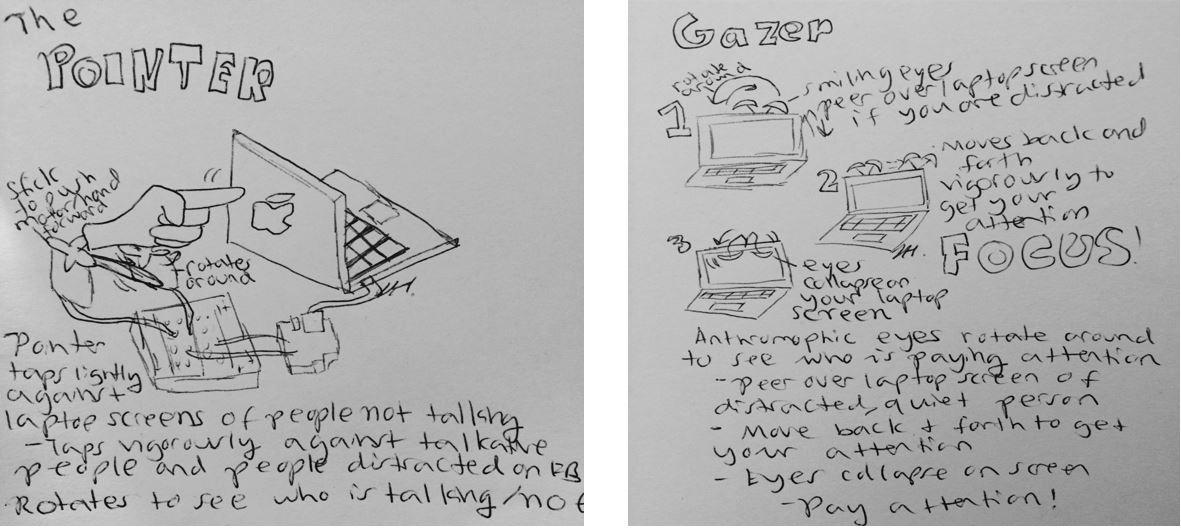 The
POINTER
stick
to push
motor hand
forward
rotates
around
JH.
Pointer
taps lightly
against
laptop screens of people not talking
-Taps vigorously against talkative
people and people distracted on FB
Rotates to see who is talking/not
Gazer
rotate
around
smiling eyes
peer over laptop screen
if you are distracted
1
2
moves back and
forth
vigorously to
get your
attention
JH.
FOCUS!
3
eyes
collapse on
your laptop
screen
Anthromophic eyes rotate around
to see who is paying attention
-Peer over laptop screen of
distracted, quiet person
- Move back + forth to get
your attention
- Eyes collapse on screen
-Pay attention!